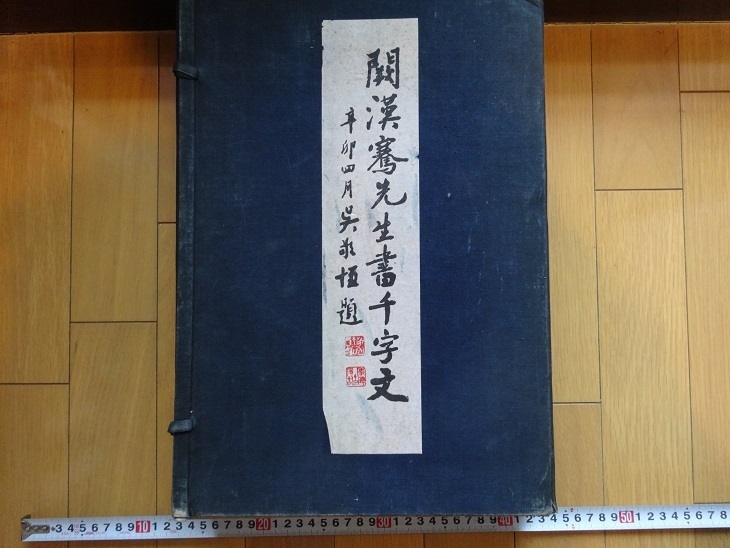 闕漢騫先生書千字文
辛卯四月吳敬恒題
3 4 5 6 7 8 9 10 1 2 3 4 5 6 7 8 9 20 1 2 3 4 5 6 7 8 9 30 1 2 3 4 5 6 7 8 9 40 1 2 3 4 5 6 7 8 9 50 1 2 3 4 5 6 7